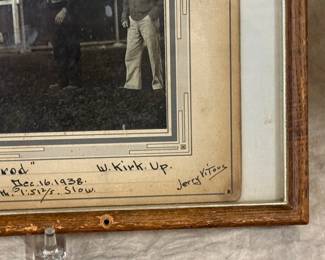 rod" W. Kirk. Up.
Dec. 16. 1938.
1:51 2/5. Slow.
Jerry Vitous